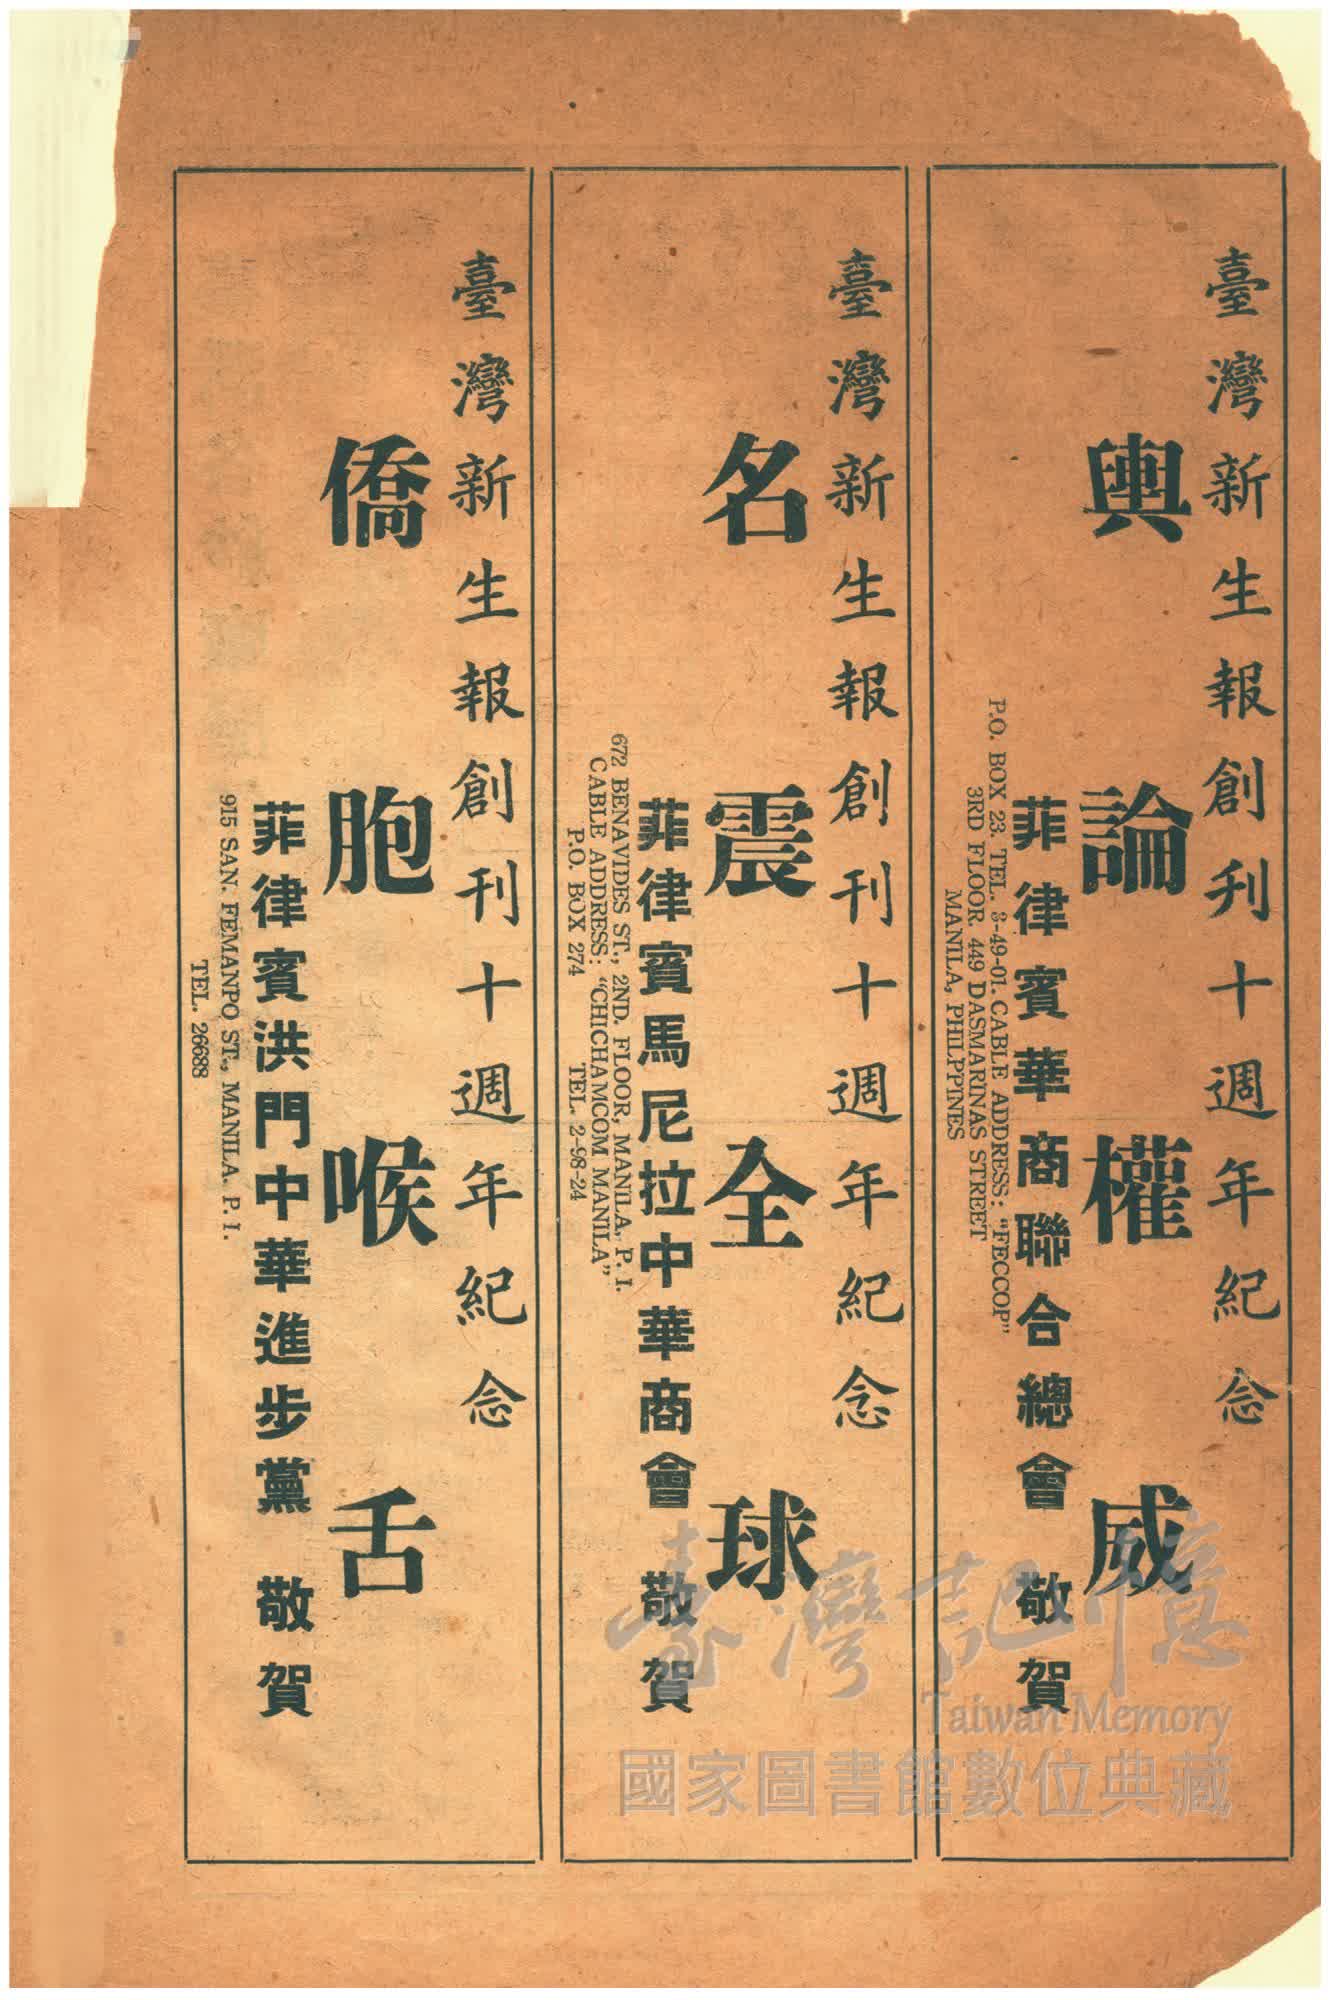 臺灣新生報創刊十週年紀念
輿論權威
菲律賓華商聯合總會 敬賀
P.O. BOX 23. TEL. 3-49-01. CABLE ADDRESS: "FECCOP"
3RD FLOOR. 449 DASMARINAS STREET
MANILA, PHILPPINES
臺灣新生報創刊十週年紀念
名震全球
菲律賓馬尼拉中華商會 敬賀
672 BENAVIDES ST., 2ND. FLOOR, MANILA, P. I.
CABLE ADDRESS: "CHICHAMCOM MANILA"
P.O. BOX 274 TEL. 2-98-24
臺灣新生報創刊十週年紀念
僑胞喉舌
菲律賓洪門中華進步黨 敬賀
915 SAN. FEMANPO ST., MANILA. P. I.
TEL. 26688
臺灣記憶
Taiwan Memory
國家圖書館數位典藏